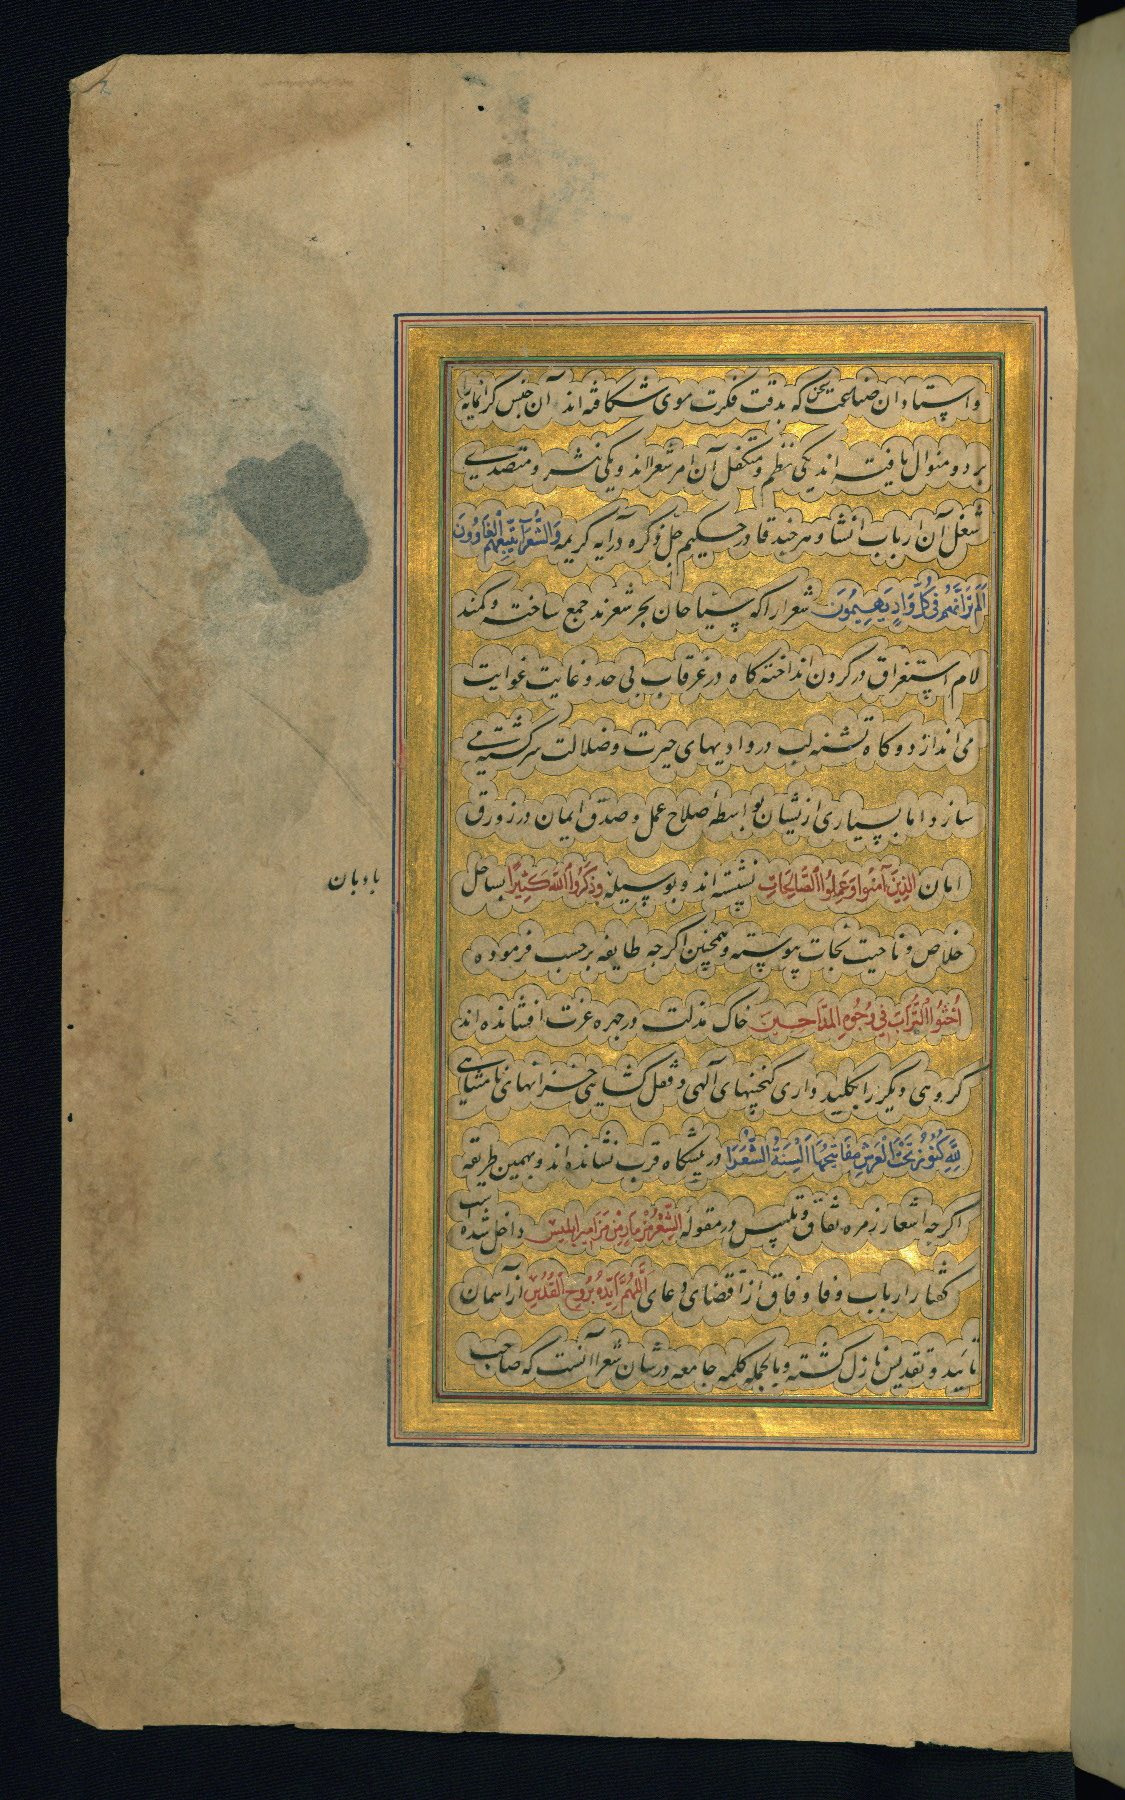 و استادان صناعت سخن که بدقت فکرت موی شکافته اند آن جنس کرانمایه را
بر دو منوال یافته اند یکی نظم و متکفل آن امر شعرااند و یکی نثر و متصدی
شغل آن ارباب انشا و هر چند قادر حکیم جل ذکره در آیه کریمه وَالشُّعَرَآءُ يَتَّبِعُهُمُ الْغَاوُونَ
اَلَمْ تَرَ اَنَّهُمْ فِي كُلِّ وَادٍ يَهِيمُونَ شعرا را که سیاحان بحر شعرند جمع ساخته و کمند
لام استغراق در کردن انداخته کاه در غرقاب بی حد و غایت غوایت
می اندازد و کاه تشنه لب در وادیهای حیرت و ضلالت سرکشته می
سازد اما بسیاری ازیشان بواسطهٔ صلاح عمل و صدق ایمان در زورق
امان الَّذِينَ آمَنُوا وَعَمِلُوا الصَّالِحَاتِ نشسته اند و بوسیلهٔ وَذَكَرُوا اللهَ كَثِيرًا بساحل
بادبان
خلاص و ناحیت نجات پیوسته و همچنین اکرچه طایفه بر حسب فرموده
اُحْثُوا التُّرَابَ فِي وُجُوهِ الْمَدَّاحِينَ خاک مذلت در چهره عزت افشانده اند
کروهی دیکر را بکلید داری کنجینهای آلهی و قفل کشایی خزانهای نامتناهی
لِلّٰهِ كُنُوزٌ تَحْتَ الْعَرْشِ مَفَاتِيحُهَا اَلْسِنَةُ الشُّعَرَا در پیشکاه قرب نشانده اند و بهمین طریقه
اکرچه اشعار زمره نفاق و تلبیس در مقوله الشِّعْرُ مِزْمَارٌ مِنْ مَزَامِيرِ اِبْلِيسَ داخل شده
کفتار ارباب وفا و وفاق از اقتضای دعای اَللّٰهُمَّ اَيِّدْهُ بِرُوحِ الْقُدُسِ از آسمان
تایید و تقدیس نازل کشته و بالجمله کلمه جامعه در شان شعرا آنست که صاحب